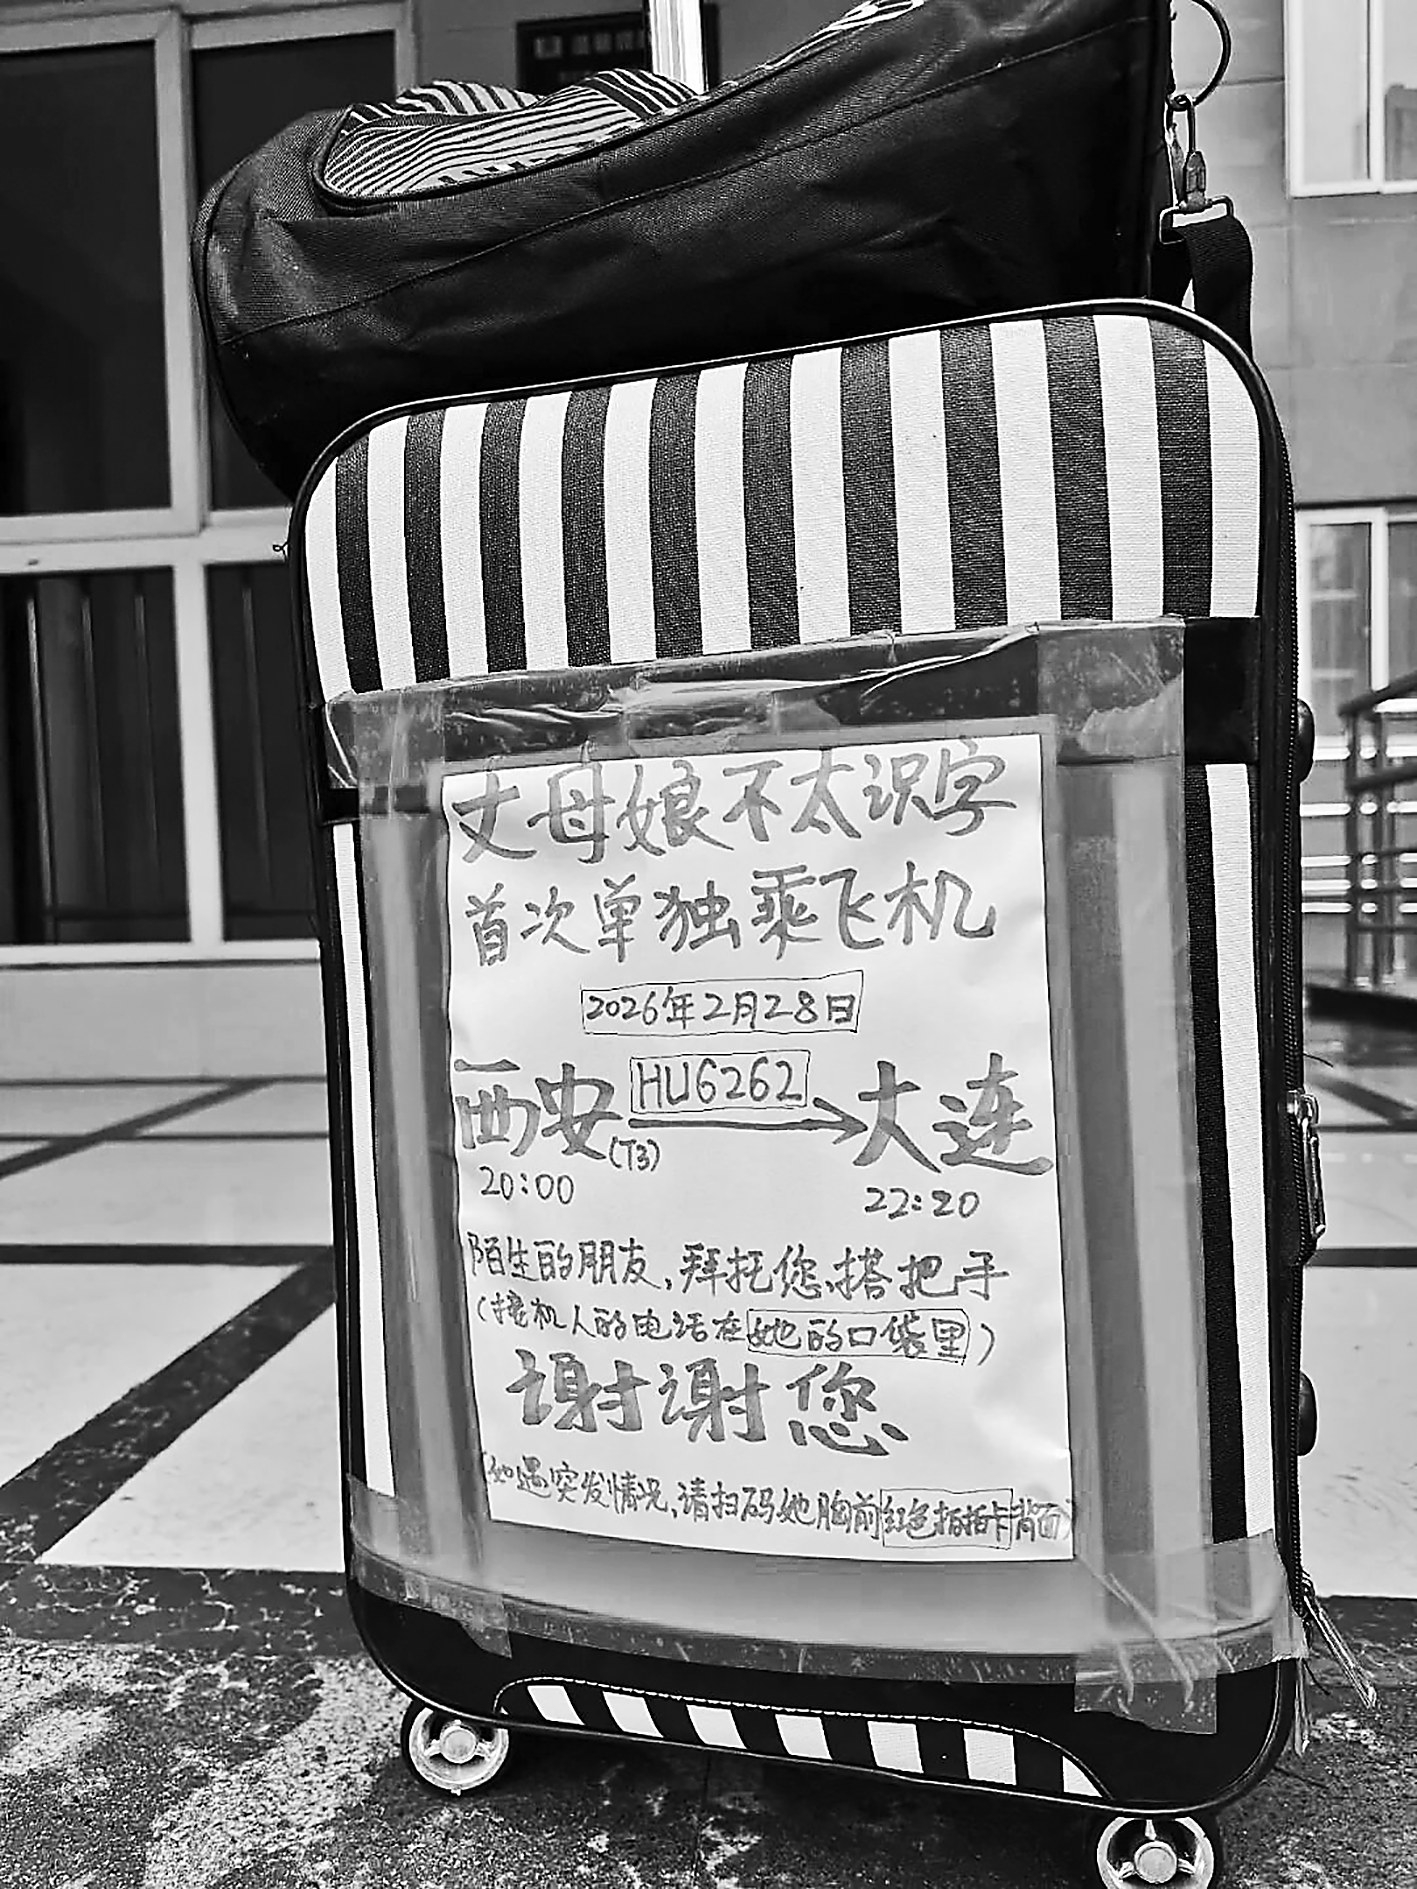 丈母娘不太识字
首次单独乘飞机
2026年2月28日
西安(T3) HU6262 → 大连
20:00 22:20
陌生的朋友,拜托您搭把手
(接机人的电话在她的口袋里)
谢谢您
(如遇突发情况,请扫码她胸前红色拍拍卡背面)